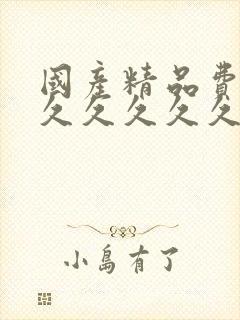 國產精品費
久久久久久
小島有了